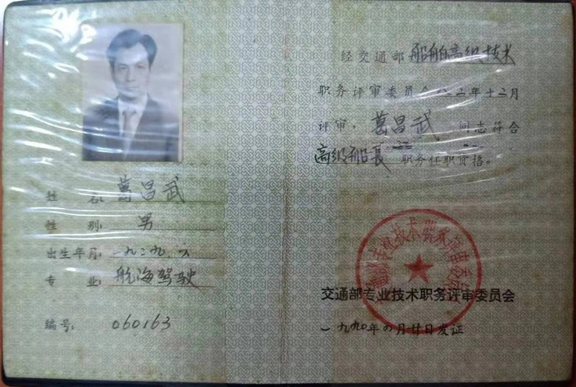 姓名: 葛昌武
性别: 男
出生年月: 一九二九.六
专业: 航海驾驶
编号: 060163
经交通部船舶高级技术
职务评审委员会 年十二月
评审, 葛昌武 同志符合
高级船长 职务任职资格。
交通部专业技术职务评审委员会
一九九〇年 月廿日发证